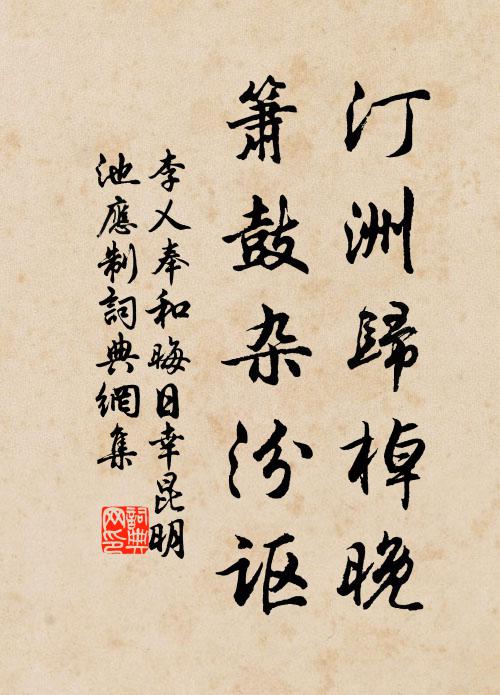 汀洲歸棹晚
簫鼓杂汾讴
李乂奉和晦日幸昆明
池應制詞典網集
詞典網印